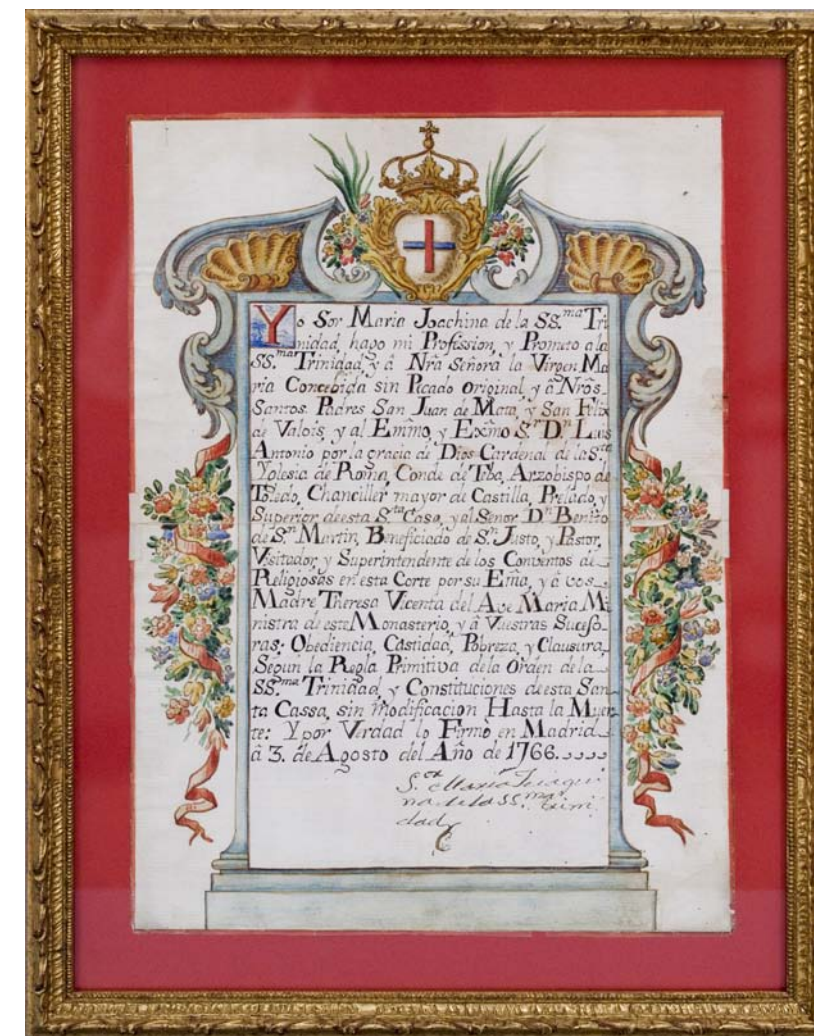 Yo Sor Maria Joachina de la SS.ma Tri
nidad, hago mi Profession, y Prometo a la
SS.ma Trinidad, y â Nrã Señora la Virgen Ma
ria Concebida sin Pecado original, y â Nrõs
Santos Padres San Juan de Mata, y San Felix
de Valois, y al Emm̃o, y Exm̃o S.r D.n Luis
Antonio por la gracia de Dios Cardenal de la S.ta
Yglesia de Roma, Conde de Teba, Arzobispo de
Toledo, Chanciller mayor de Castilla, Prelado, y
Superior de esta S.ta Casa, y al Señor D.n Benito
de S.n Martin, Beneficiado de S.n Justo, y Pastor,
Visitador, y Superintendente de los Conventos de
Religiosas en esta Corte por su Em̃a, y â vos
Madre Theresa Vicenta del Ave Maria Mi
nistra de este Monasterio, y â Vuestras Suceso
ras: Obediencia, Castidad, Pobreza, y Clausura,
Segun la Regla Primitiva de la Orden de la
SS.ma Trinidad, y Constituciones de esta San
ta Cassa, sin modificacion Hasta la Muer
te: Y por Verdad lo Firmo en Madrid
â 3. de Agosto del Año de 1766.
S.or Maria Joaqui
na de la SS.ma trini
dad